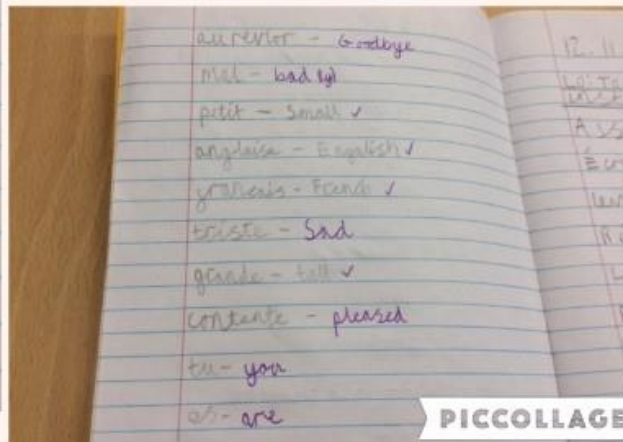 aurevior - Goodbye
mal - bad
petit - Small ✓
anglaise - English ✓
français - French ✓
triste - Sad
grande - tall ✓
contente - pleased
tu - you
es - are
12.11
A
PICCOLLAGE